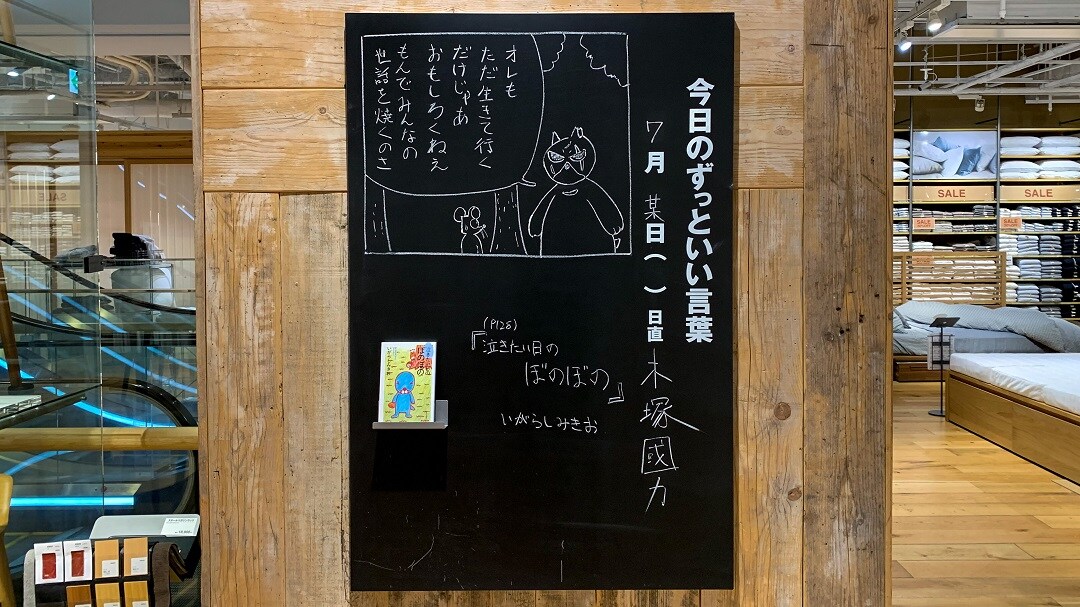 今日のずっといい言葉
7月 某日( )日直 木塚國力
オレも
ただ生きて行く
だけじゃあ
おもしろくねえ
もんでみんなの
世話を焼くのさ
(P128)
『泣きたい日の
ぼのぼの』
いがらしみきお
ぼのぼの
SALE
SALE
SALE
SALE
SALE